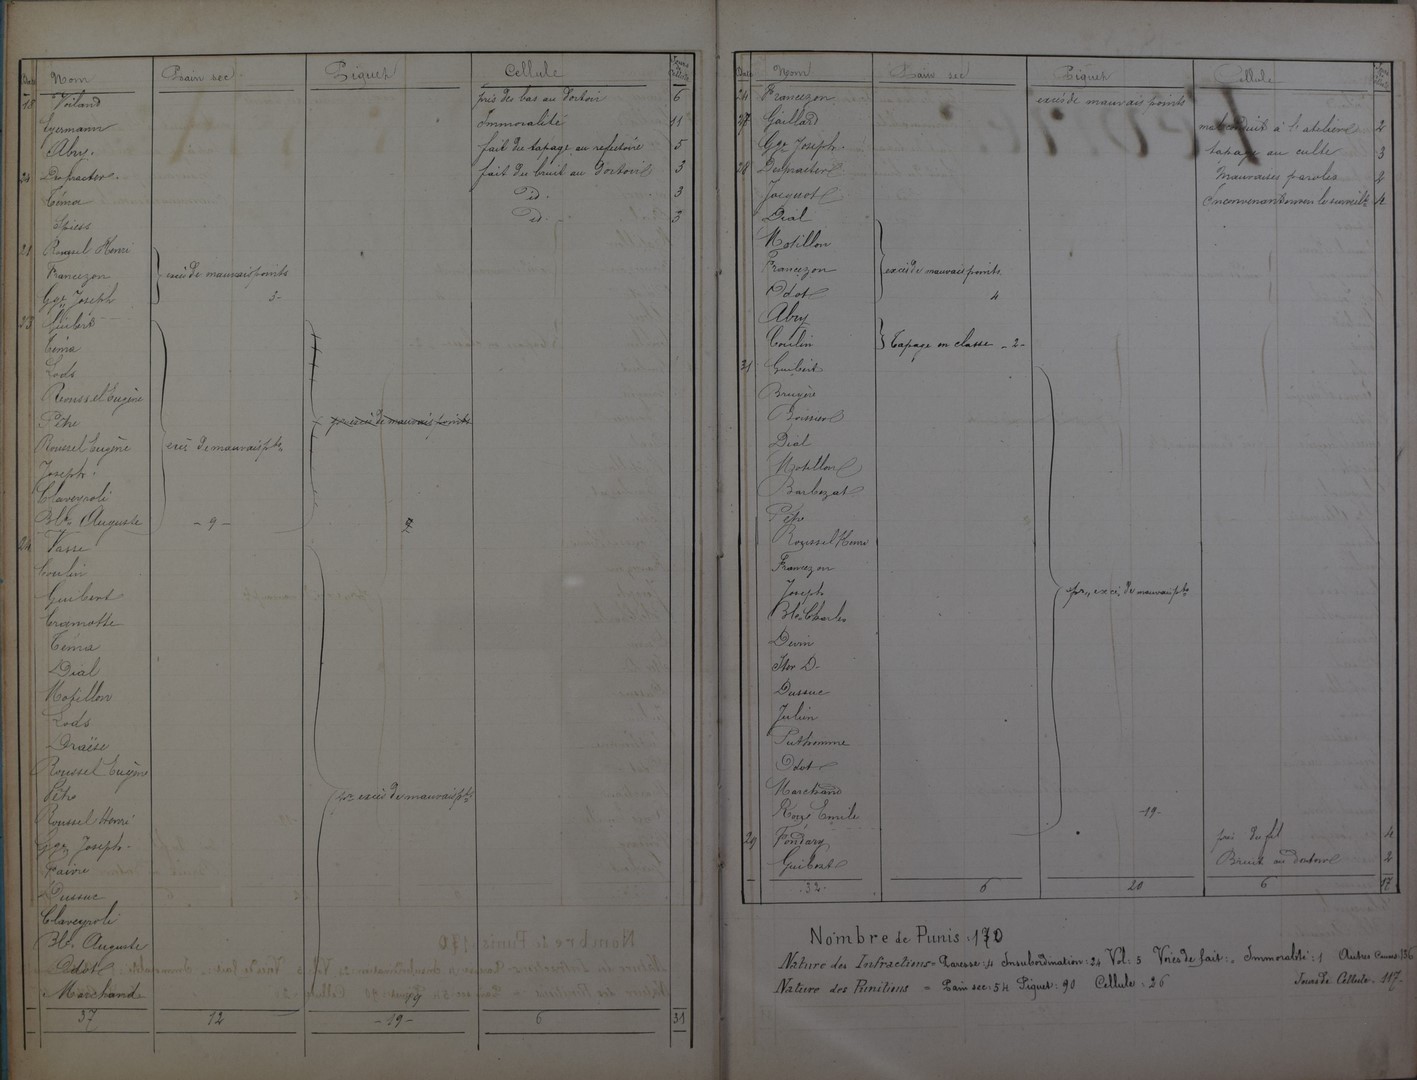 Date Nom Pain sec Piquet Cellule Jours de Cellule
18 Voiland pris des bas au Dortoir 6
Germann Immoralité 11
Abry. fait du tapage au refectoire 5
24 Desfracter. fait du bruit au Dortoir 3
Téma id. 3
Spiess id. 3
21 Roussel Henri
Francezon excès de mauvais points
Ggr Joseph 3-
23 Guibert
Téma
Lods
Roussel Eugène
Pêtre pr excès de mauvais points
Roussel Eugène excès de mauvais pts
Joseph.
Claveyroli
Blc Auguste - 9 - 7
24 Vasse
Coulin
Guibert
Cramotte
Téma
Dial
Motillon
Lods
Draëse
Roussel Eugène
Pêtre pr excès de mauvais pts
Roussel Henri
Ggr Joseph.
Faivre
Dussuc
Claveyroli
Blc. Auguste
Odot
Marchand 19
37 12 - 19 - 6 31
Date Nom Pain sec Piquet Cellule Jours de Cellule
24 Francezon excès de mauvais points
27 Gaillard mal conduit à l'atelier 2
Ggr Joseph. tapage au culte 3
28 Desfracter Mauvaises paroles 2
Jacquot 4
Dial
Motillon
Francezon excès de mauvais points
Odot 4
Abry
Coulin Tapage en classe - 2 -
31 Guibert
Bruyère
Boisson
Dial
Motillon
Barbezat
Pêtre
Roussel Henri
Francezon
Joseph pr excès de mauvais pts
Blc Charles
Devin
Itor D.
Dussuc
Julien
Puthomme
Odot
Marchand
Roux Emile -19-
29 Fondary pris du fil 4
Guibert Bruit au dortoir 2
32. 6 20 6 17
Nombre de Punis : 170
Nature des Infractions = Paresse : 4 Insubordination : 24 Vol : 5 Voies de fait : „ Immoralité : 1 Autres Causes : 136
Nature des Punitions = Pain sec : 54 Piquet : 90 Cellule : 26 Jours de Cellule : 117-